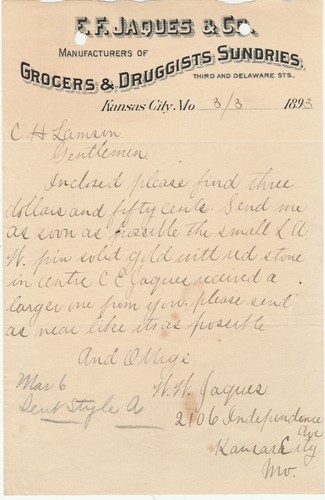 F. F. JAQUES & CO.
MANUFACTURERS OF
GROCERS & DRUGGISTS SUNDRIES,
THIRD AND DELAWARE STS.
Kansas City, Mo 3/3 1893
C H Lamson
Gentlemen,
Inclosed please find three
dollars and fifty cents. Send me
as soon as possible the small L A
W. pin solid gold with red stone
in centre C E Jaques received a
larger one from you. please send
as near like its as possible
And Oblige
W. W. Jaques
2106 Independence
Ave
Kansas City
Mo.
Mar 6
Sent Style A